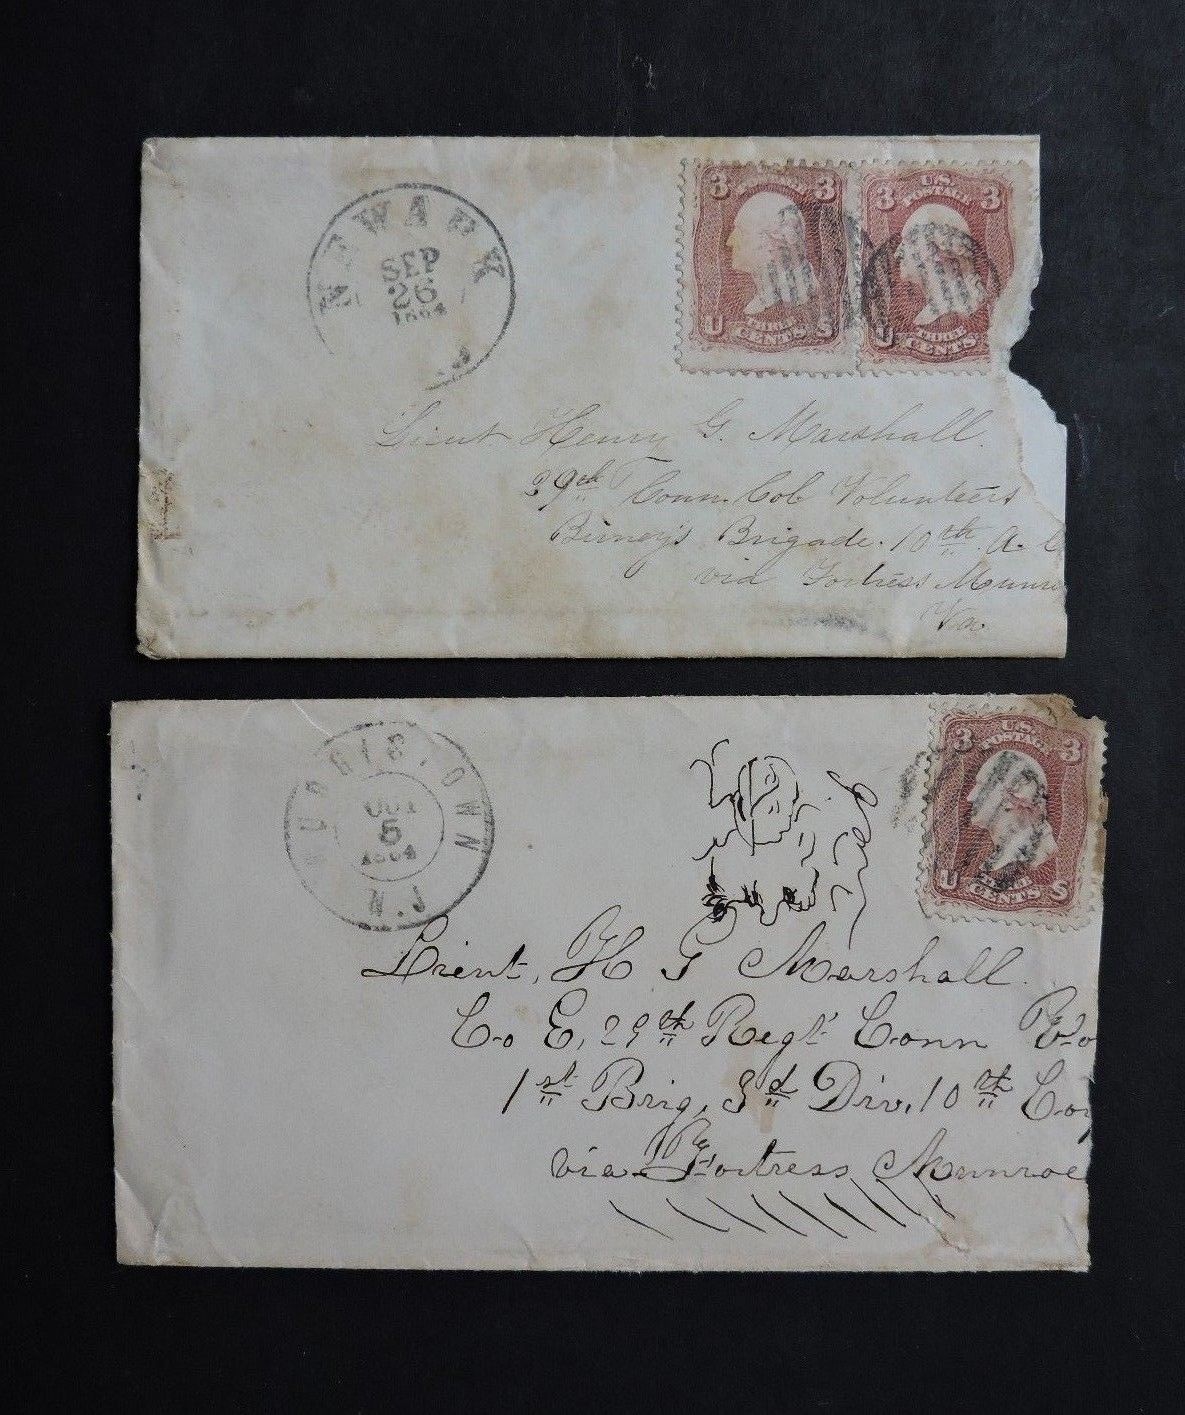 NEWARK
SEP
26
1864
N.J.
3 U.S. POSTAGE 3
U THREE CENTS S
3 U.S. POSTAGE 3
U THREE CENTS
Lieut Henry G. Marshall.
29th Conn. Col Volunteers
Birney's Brigade. 10th A. C
via Fortress Munro
Va.
MORRISTOWN
OCT
5
1864
N.J.
3 U.S. POSTAGE 3
U THREE CENTS S
Lieut, H G Marshall.
Co E, 29th Regt Conn Vo
1st Brig, 3d Div, 10th Cor
via Fortress Munroe